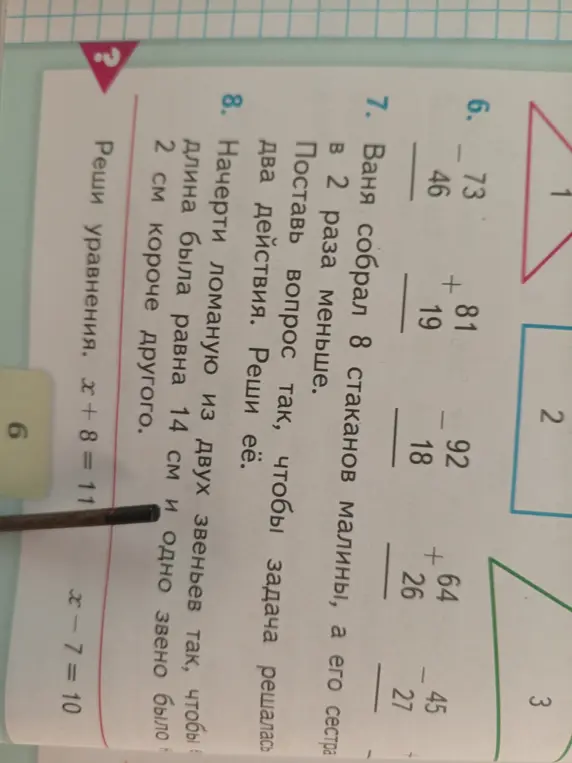 1 2 3
6. − 73 + 81 − 92 + 64 − 45
46 19 18 26 27
7. Ваня собрал 8 стаканов малины, а его сестра
в 2 раза меньше.
Поставь вопрос так, чтобы задача решалась
два действия. Реши её.
8. Начерти ломаную из двух звеньев так, чтобы
длина была равна 14 см и одно звено было
2 см короче другого.
? Реши уравнения. x + 8 = 11 x − 7 = 10
6